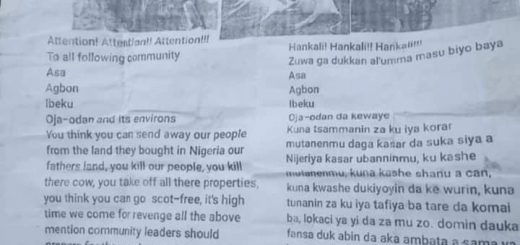 Attention! Attention!! Attention!!!
To all following community
Asa
Agbon
Ibeku
Oja-odan and its environs
You think you can send away our people
from the land they bought in Nigeria our
fathers land, you kill our people, you kill
there cow, you take off all there properties,
you think you can go scot-free, it's high
time we come for revenge all the above
mention community leaders should
Hankali! Hankali!! Hankali!!!
Zuwa ga dukkan al'umma masu biyo baya
Asa
Agbon
Ibeku
Oja-odan da kewaye
Kuna tsammanin za ku iya korar
mutanenmu daga kasar da suka siya a
Nijeriya kasar ubanninmu, ku kashe
mutanenmu, kuna kashe shanu a can,
kuna kwashe dukiyoyin da ke wurin, kuna
tunanin za ku iya tafiya ba tare da komai
ba, lokaci ya yi da za mu zo. domin dauka
fansa duk abin da aka ambata a sama